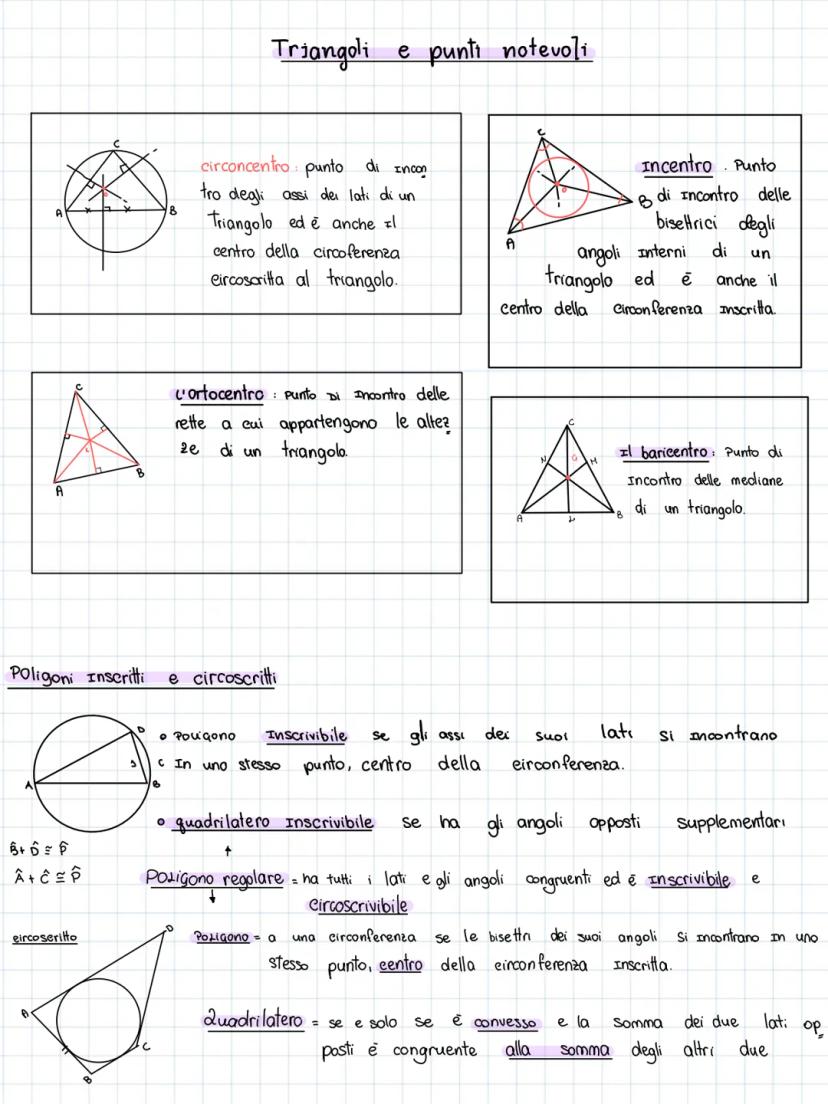 Triangoli e punti notevoli
circoncentro: punto di incon
tro degli assi dei lati di un
triangolo ed è anche il
centro della circoferenza
circoscritta al triangolo.
C
A
B
Incentro. Punto
di incontro delle
bisettrici degli
angoli interni di un
triangolo ed è anche il
centro della circonferenza inscritta.
C
O
B
A
L'ortocentro: Punto di incontro delle
rette a cui appartengono le altez
ze di un triangolo.
C
B
A
Il baricentro: Punto di
incontro delle mediane
di un triangolo.
C
N
G
M
A
L
B
Poligoni inscritti e circoscritti
D
C
A
B
• Poligono Inscrivibile se gli assi dei suoi lati si incontrano
In uno stesso punto, centro della circonferenza.
• quadrilatero inscrivibile se ha gli angoli opposti supplementari
B̂ + D̂ ≅ P̂
Â + Ĉ ≅ P̂
Poligono regolare = ha tutti i lati e gli angoli congruenti ed è inscrivibile e
circoscrivibile
circoscritto
Poligono = a una circonferenza se le bisettri dei suoi angoli si incontrano in uno
stesso punto, centro della circonferenza inscritta.
Quadrilatero = se e solo se è convesso e la somma dei due lati op
posti è congruente alla somma degli altri due
D
A
C
B